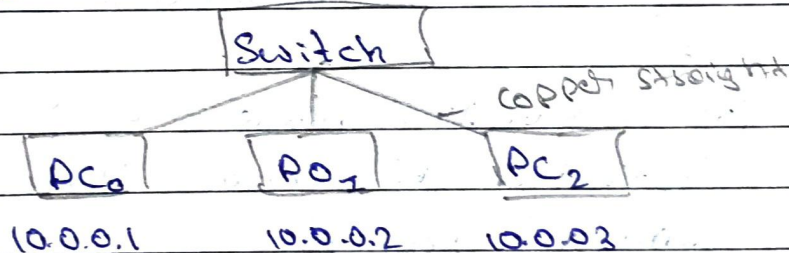 Switch
copper straight
PC0 PC1 PC2
10.0.0.1 10.0.0.2 10.0.03